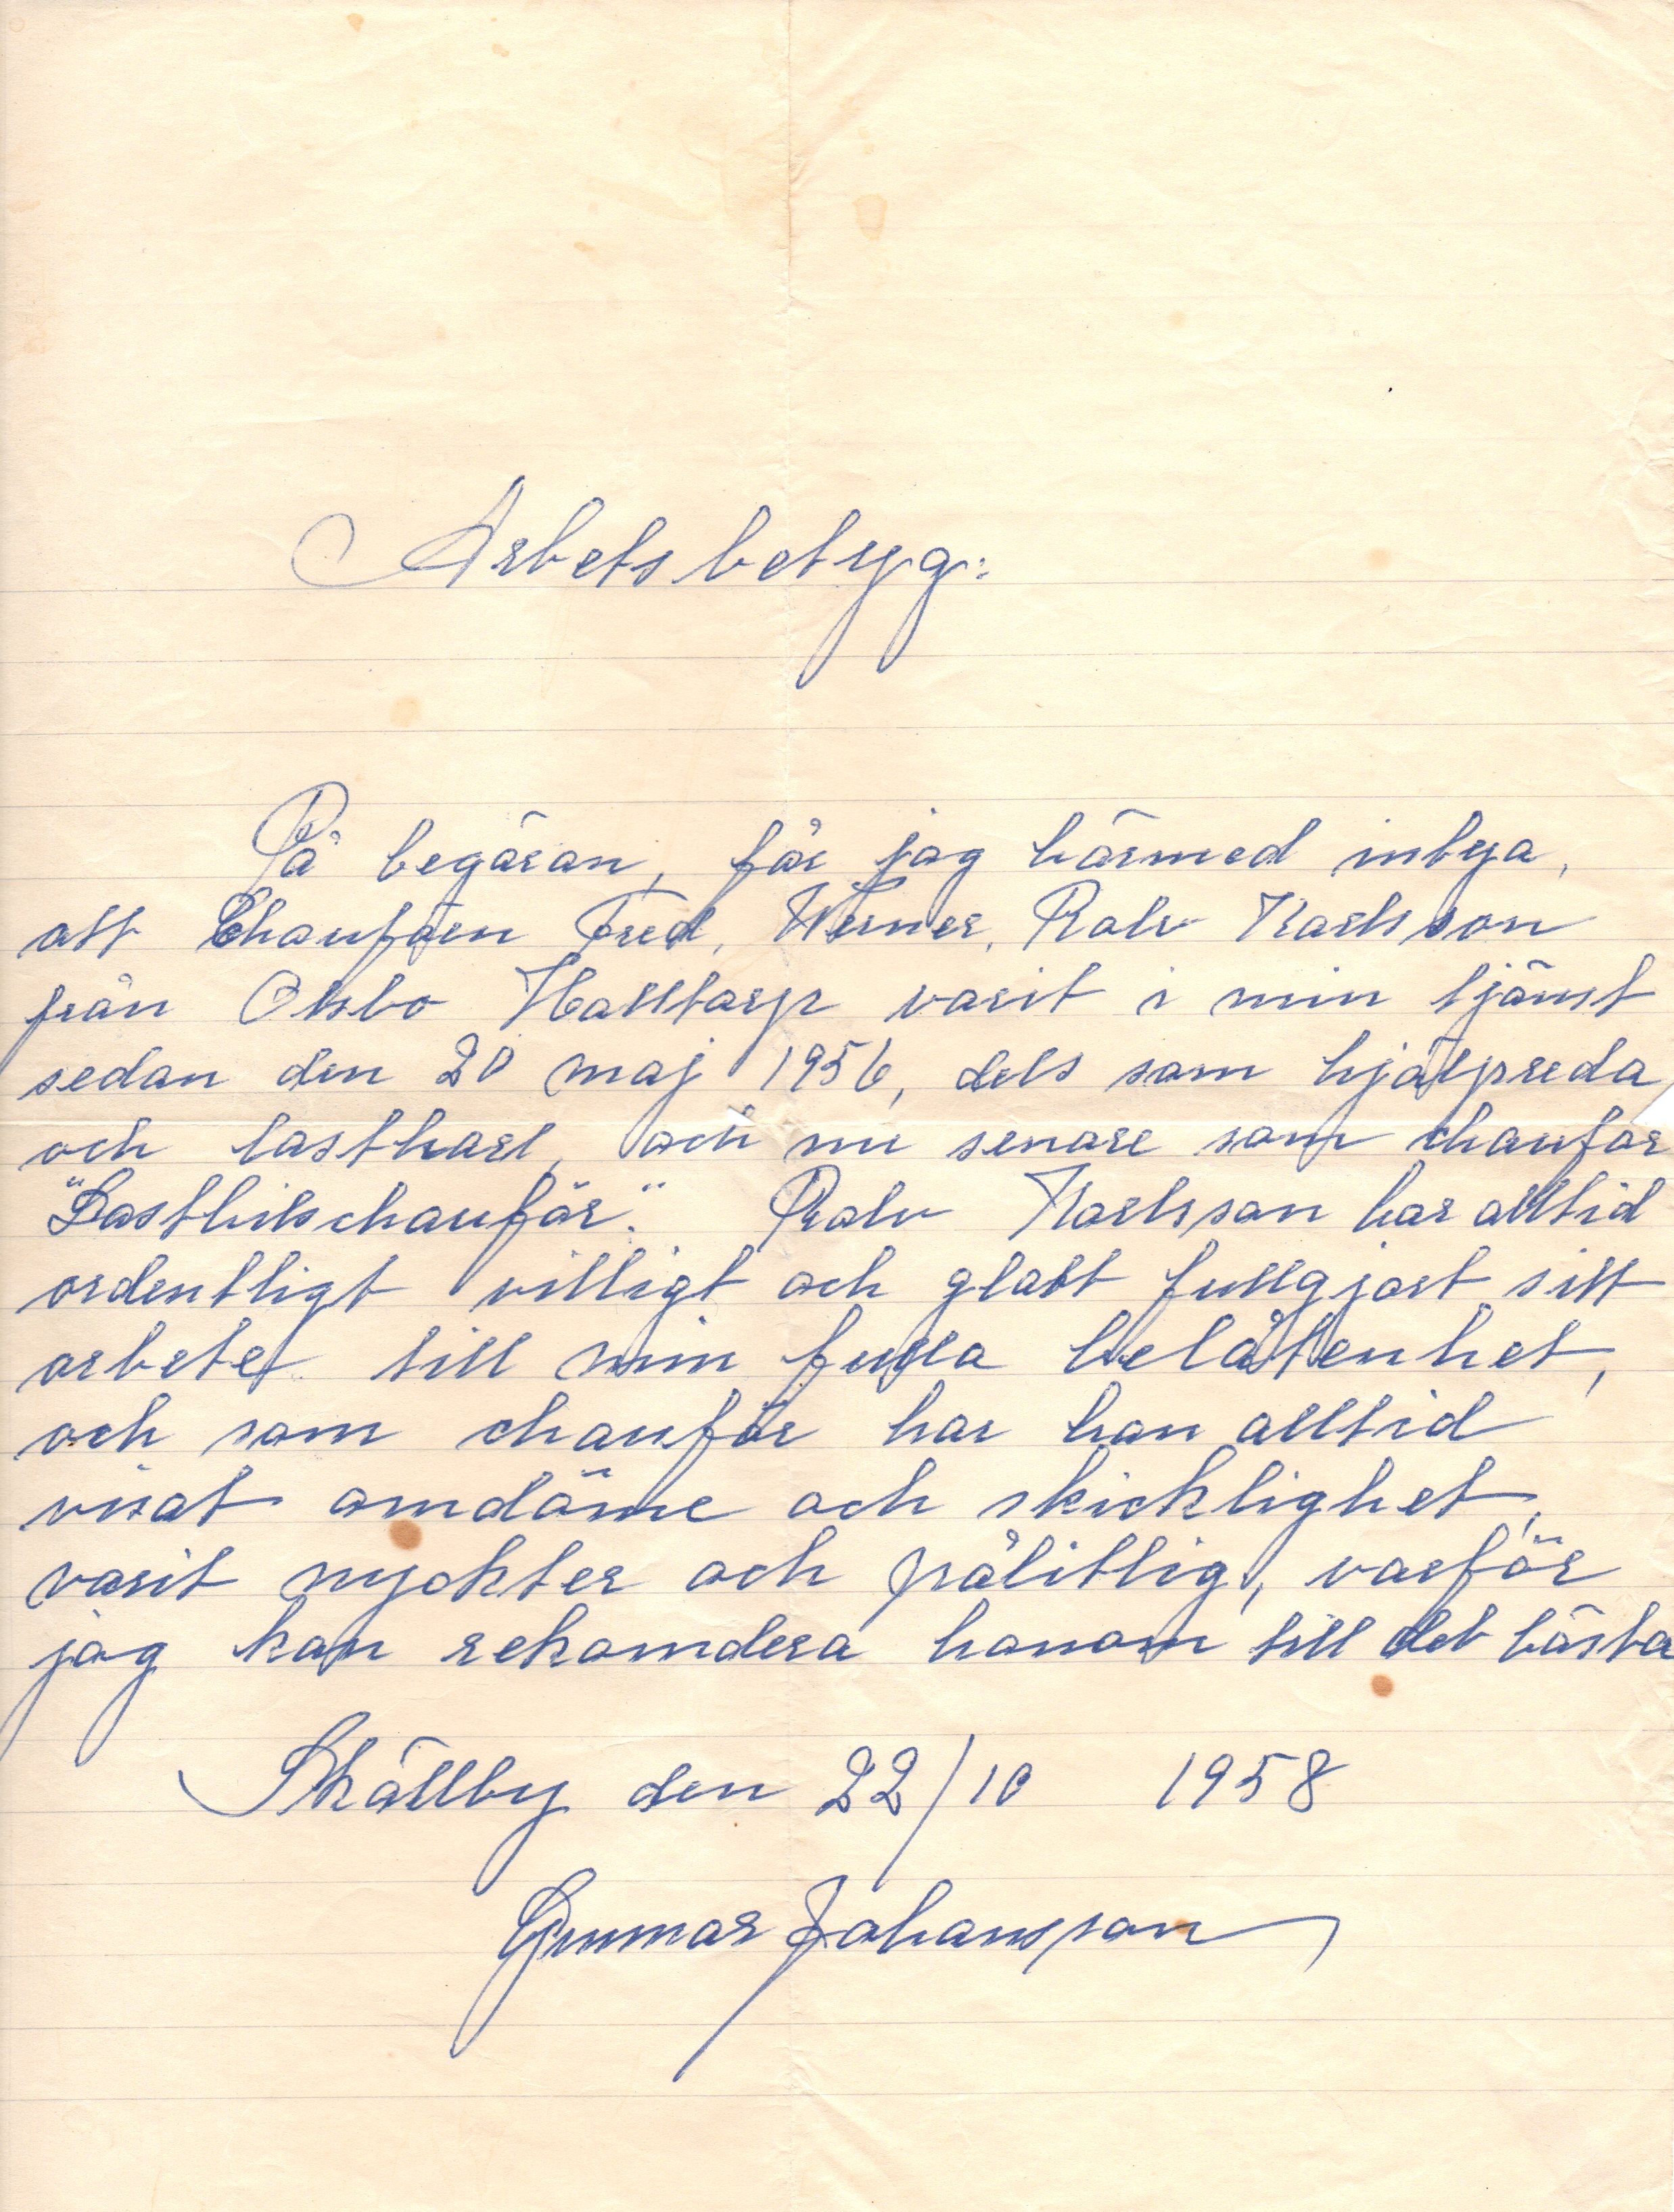 Arbetsbetyg:
På begäran, får jag härmed intyga,
att Chauföen Fred, Werner, Ralv Karlsson
från Olsbo Halltorp varit i min tjänst
sedan den 20 maj 1956, dels som hjälpreda,
och lastkarl, och nu senare som chauför
"Lastbilschauför." Ralv Karlsson har alltid
ordentligt villigt och glatt fullgjort sitt
arbete till min fulla belåtenhet,
och som chauför har han alltid
visat omdöme och skicklighet,
varit nyckter och pålitlig, varför
jag kan rekomdera honom till det bästa
Skällby den 22/10 1958
Gunnar Johansson